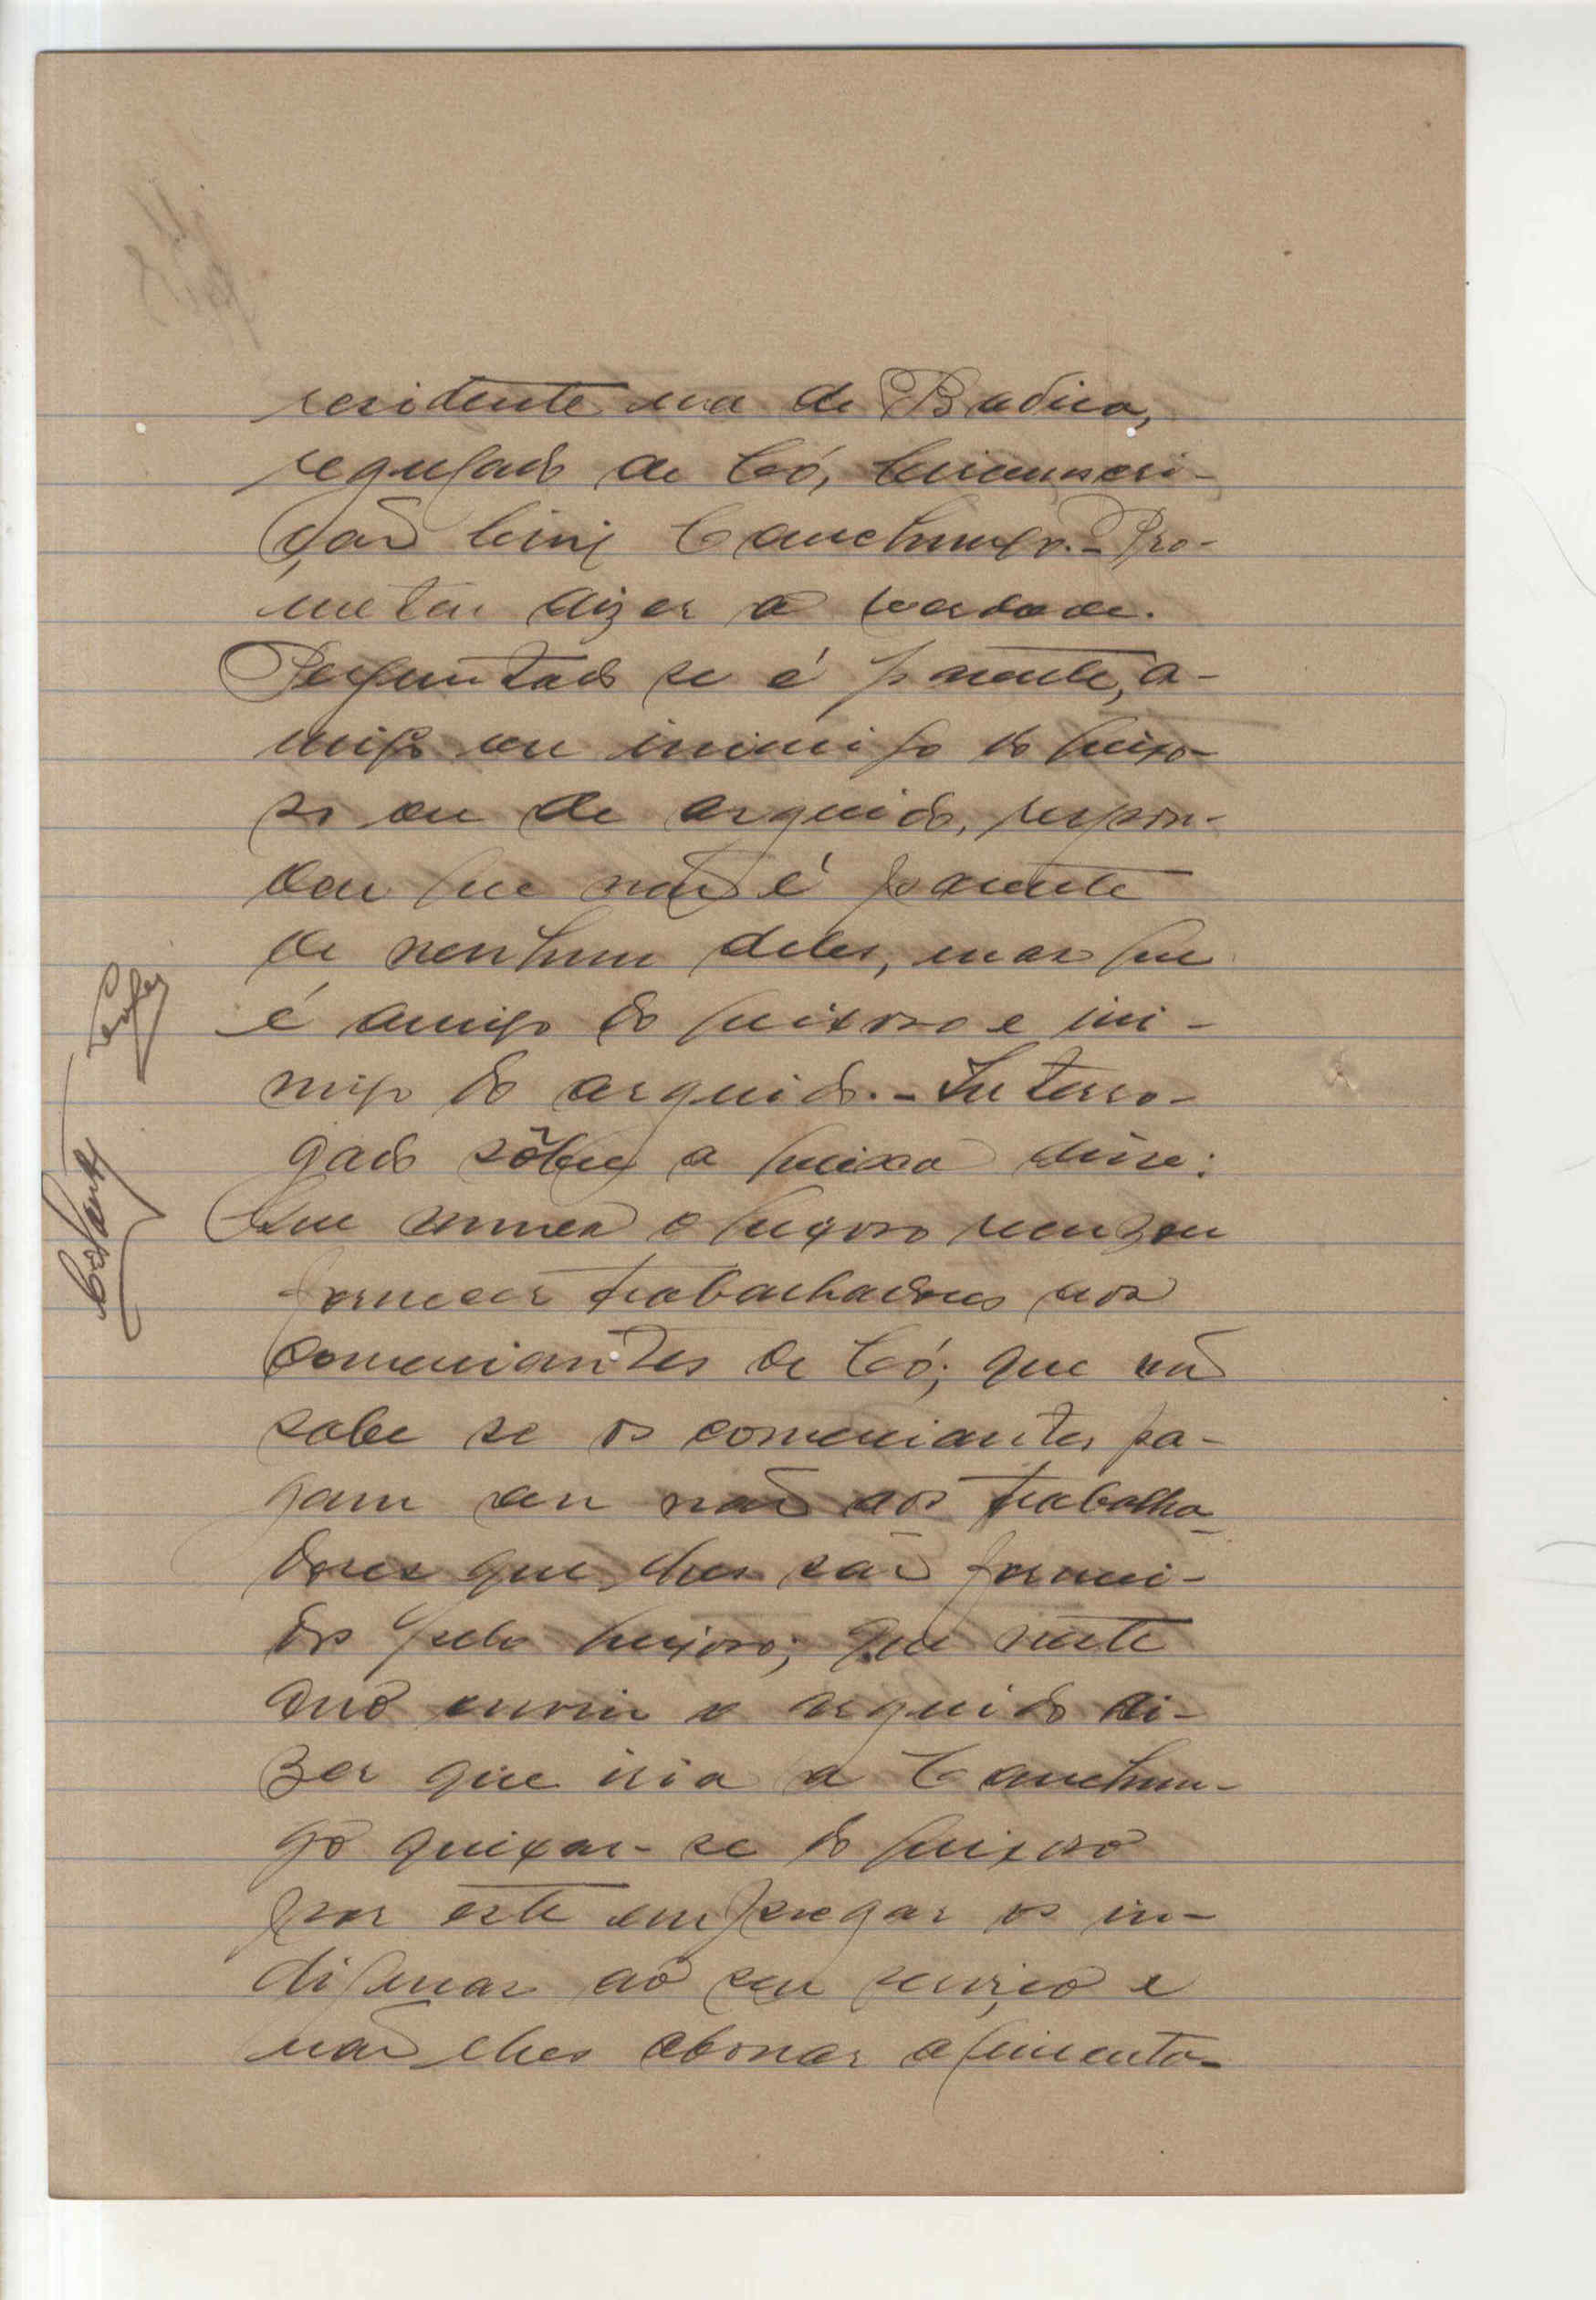 residente na de Badica,
regulado de Có, Circunscri-
ção Civil Canchungo.- Pro-
meteu dizer a verdade.
Perguntado se é parente, a-
migo ou inimigo do queixo-
so ou do arguido, respon-
deu que não é parente
de nenhum deles, mas que
é amigo do queixoso e ini-
migo do arguido.- Interro-
gado sôbre a queixa disse:
Que nunca o queixoso recuzou
fornecer trabalhadores aos
comerciantes de Có; que não
sabe se os comerciantes pa-
gam ou não aos trabalha-
dores que lhes são forneci-
dos pelo queixoso; que neste
ano ouviu o arguido di-
zer que iria a Canchun-
go queixar-se do queixoso
por este empregar os in-
digenas ao seu serviço e
não lhes abonar alimenta-